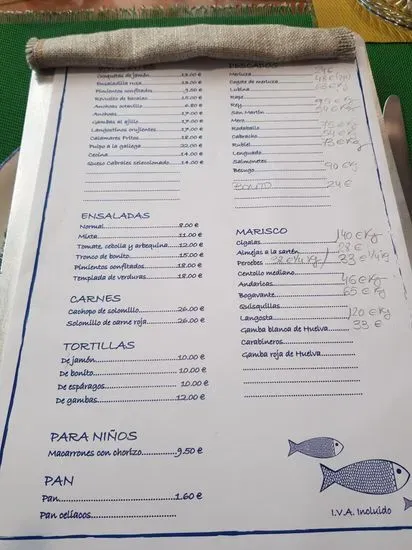 Croquetas de jamón 13.00 €
Ensaladilla rusa 13.00 €
Pimientos confitados 9.50 €
Revuelto de bacalao 15.00 €
Anchoas octavillo 6.80 €
Anchoas 17.00 €
Gambas al ajillo 17.00 €
Langostinos crujientes 17.00 €
Calamares Fritos 17.00 €
Pulpo a la gallega 22.00 €
Cecina 14.00 €
Queso Cabrales seleccionado 14.00 €
ENSALADAS
Normal 8.00 €
Mixta 11.00 €
Tomate, cebolla y arbequina 12.00 €
Tronco de bonito 15.00 €
Pimientos confitados 18.00 €
Templada de verduras 18.00 €
CARNES
Cachopo de solomillo 26.00 €
Solomillo de carne roja 26.00 €
TORTILLAS
De jamón 10.00 €
De bonito 10.00 €
De espáragos 10.00 €
De gambas 12.00 €
PARA NIÑOS
Macarrones con chorizo 9.50 €
PAN
Pan 1.60 €
Pan celíacos
PESCADOS
Merluza
Cogote de merluza
Lubina
Rape
Rey
San Martín
Mero
Rodaballo
Cabracho
Rubiel
Lenguado
Salmonetes
Besugo 90 € Kg
BONITO 24 €
MARISCO
Cigalas 140 € Kg
Almejas a la sartén 28 €
Percebes 28 € 1/4 Kg / 33 € 1/4 Kg
Centollo mediano
Andaricas 46 € Kg
Bogavante 65 € Kg
Quisquillas
Langosta 120 € Kg
Gamba blanca de Huelva 33 €
Carabineros
Gamba roja de Huelva
I.V.A. Incluido